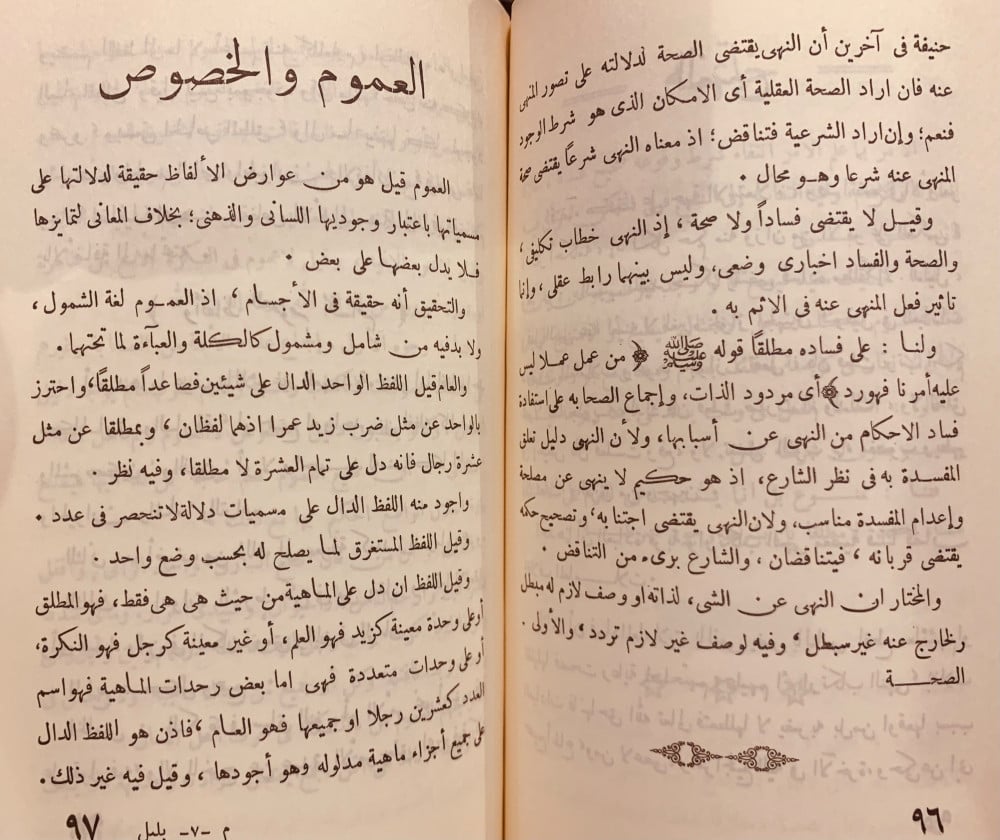 حنيفة فى آخرين أن النهى يقتضى الصحة لدلالته على تصور المنهى
عنه فان اراد الصحة العقلية أى الامكان الذى هو شرط الوجود
فنعم؛ وإن اراد الشرعية فتناقض؛ اذ معناه النهى شرعاً يقتضى صحة
المنهى عنه شرعا وهو محال .
وقيل لا يقتضى فساداً ولا صحة ، إذ النهى خطاب تكليفى ،
والصحة والفساد اخبارى وضعى، وليس بينهما رابط عقلى ، وإنما
تاثير فعل المنهى عنه فى الاثم به .
ولنا : على فساده مطلقاً قوله ﷺ ﴿ من عمل عملا ليس
عليه أمرنا فهورد ﴾ أى مردود الذات، وإجماع الصحابه على استفادة
فساد الاحكام من النهى عن أسبابها، ولأن النهى دليل تعلق
المفسدة به فى نظر الشارع، اذ هو حكيم لا ينهى عن مصلحة
وإعدام المفسدة مناسب، ولان النهى يقتضى اجتنابه، وتصحيح حكمه
يقتضى قربانه ، فيتناقضان ، والشارع برىء من التناقض .
والمختار ان النهى عن الشى، لذاته او وصف لازم له مبطل
ولخارج عنه غير سبطل ، وفيه لوصف غير لازم تردد، والأولى .
الصحة
٩٦
العموم والخصوص
العموم قيل هو من عوارض الألفاظ حقيقة لدلالتها على
مسمياتها باعتبار وجوديها اللسانى والذهنى؛ بخلاف المعانى لتمايزها
فلا يدل بعضها على بعض .
والتحقيق أنه حقيقة فى الأجسام ، اذ العموم لغة الشمول ،
ولا بدفيه من شامل ومشمول كالكلة والعبآءة لما تحتهما .
والعام قيل اللفظ الواحد الدال على شيئين فصاعداً مطلقاً، واحترز
بالواحد عن مثل ضرب زيد عمرا اذهما لفظان ، وبمطلقا عن مثل
عشرة رجال فانه دل على تمام العشرة لا مطلقا، وفيه نظر .
واجود منه اللفظ الدال على مسميات دلالة لا تنحصر فى عدد .
وقيل اللفظ المستغرق لما يصلح له بحسب وضع واحد .
وقيل اللفظ ان دل على الماهية من حيث هى هى فقط، فهو المطلق
أو على وحدة معينة كزيد فهو العلم، أو غير معينة كرجل فهو النكرة،
أو على وحدات متعددة فهى اما بعض رحدات الماهية فهو اسم
العدد كعشرين رجلا او جميعها فهو العام ، فاذن هو اللفظ الدال
على جميع أجزاء ماهية مدلوله وهو أجودها ، وقيل فيه غير ذلك .
م -٧- بلبل
٩٧